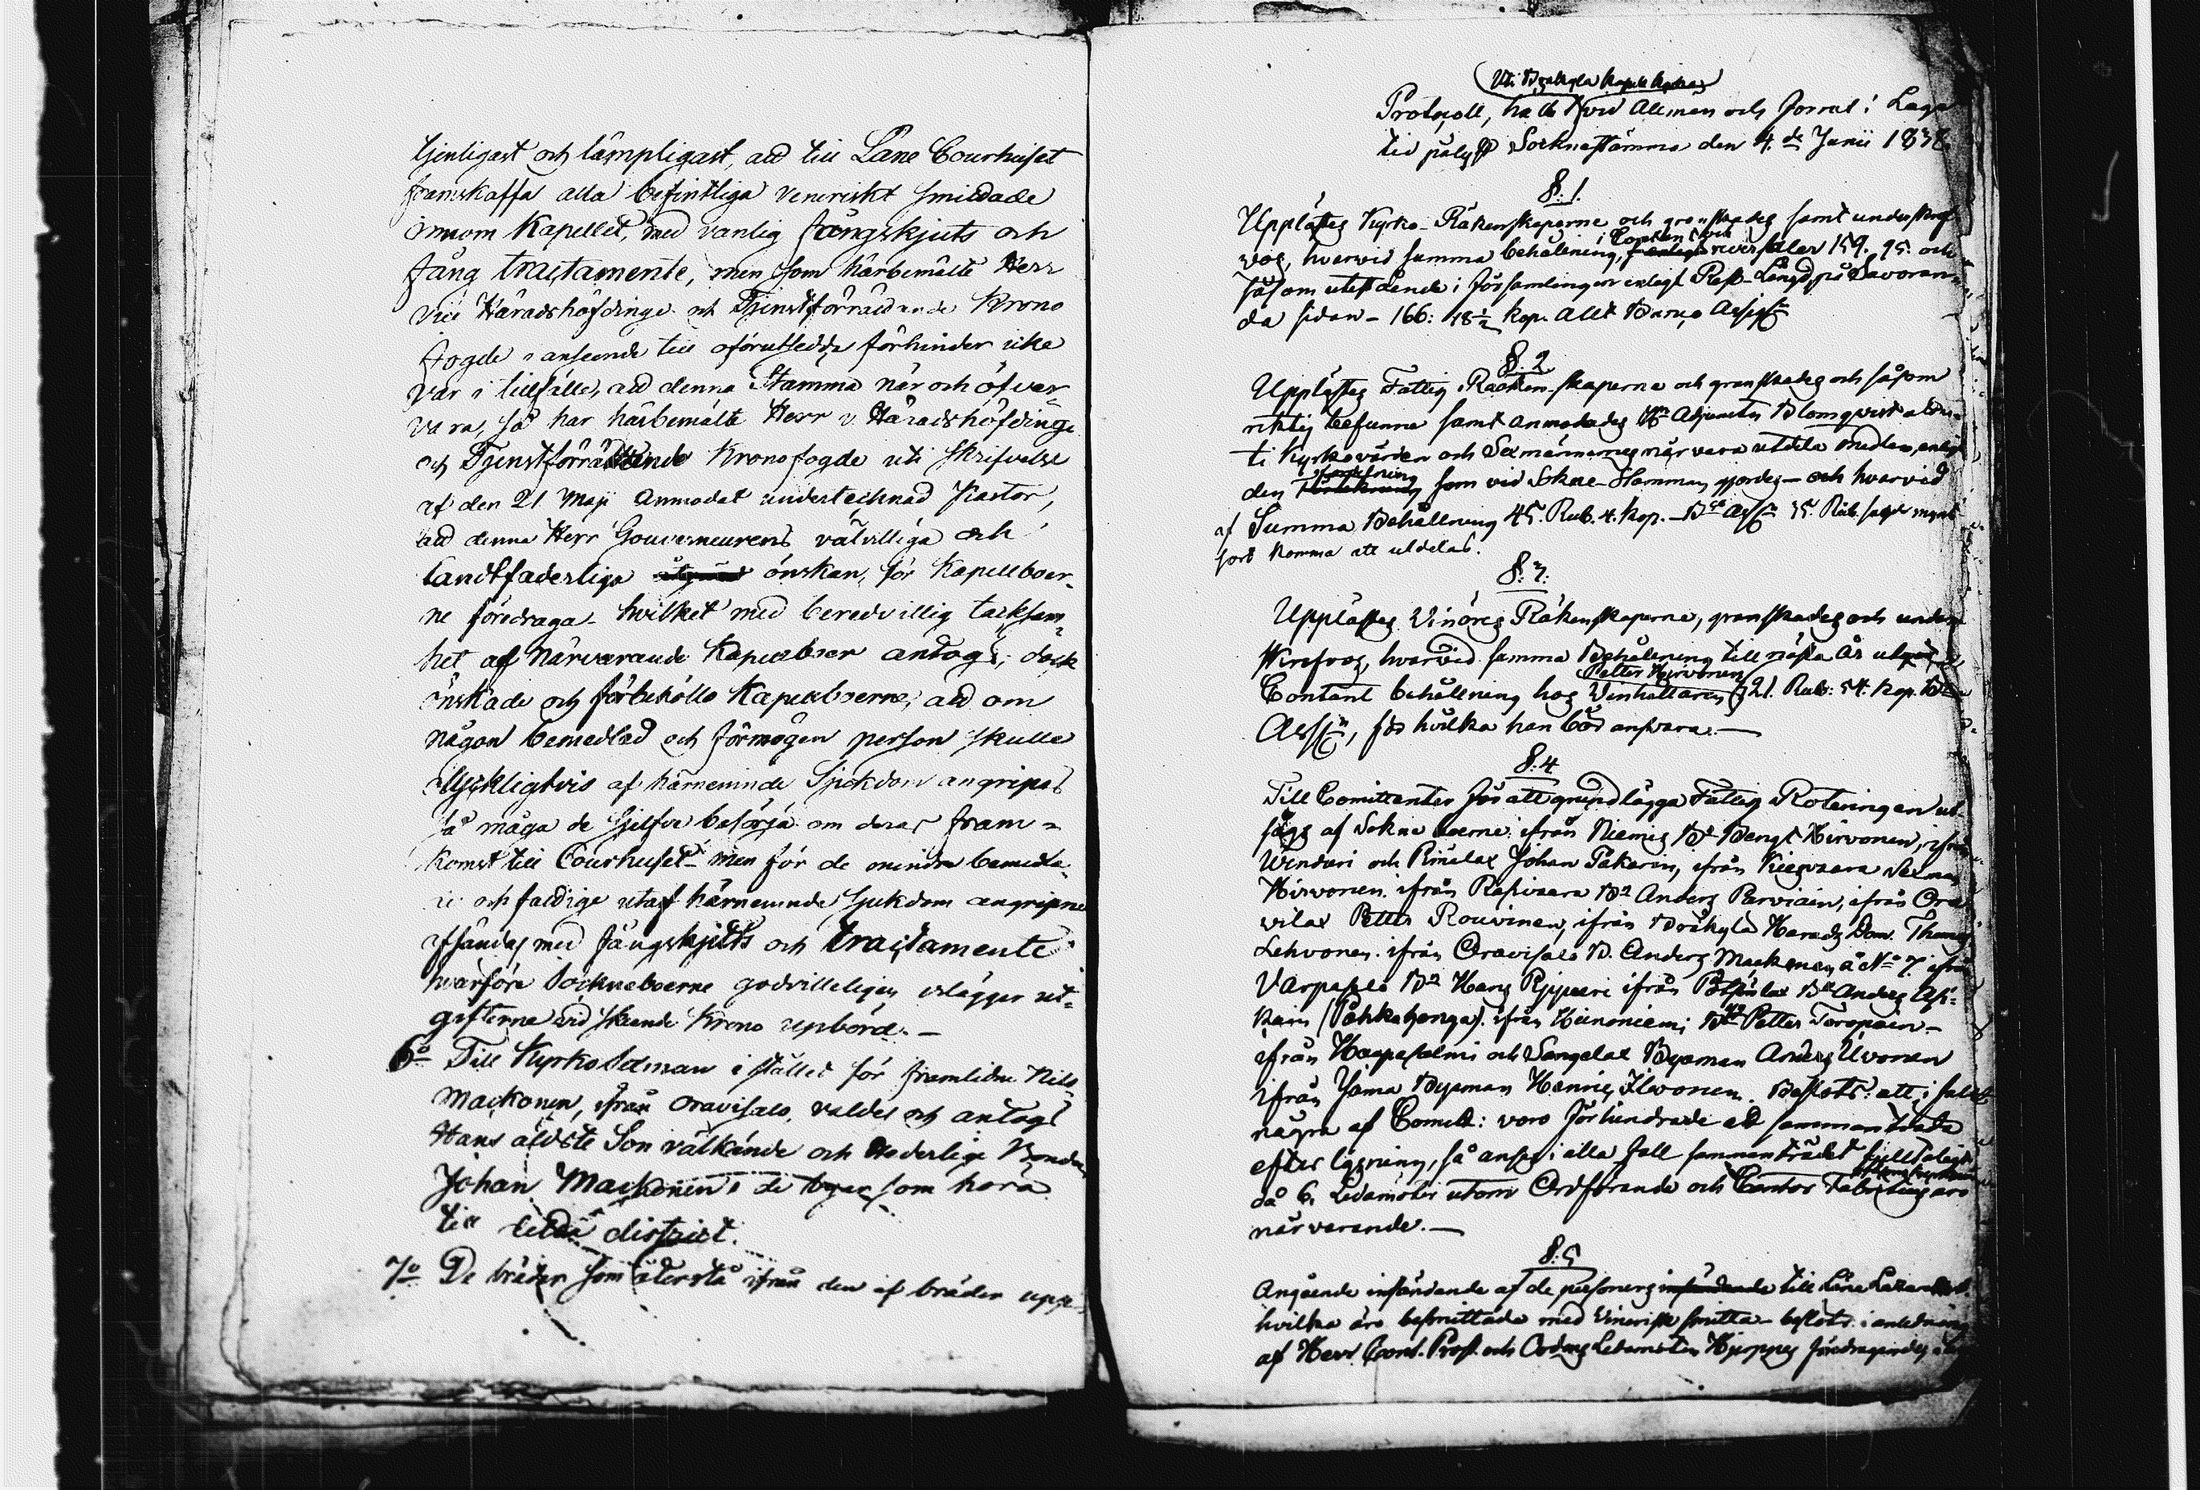 tjenligast och lämpligast, att till Läne Courhuset
framskaffa alla befintliga veneriskt smittade
innom Kapellet, med vanlig fångskjuts och
fång tractamente, men som härbemälte Herr
Vice Häradshöfdinge och Tjenstförrättande Krono
fogde i anseende till oförutsedda förhinder icke
var i tillfälle, att denna Stämma när och öfver-
vara, så har härbemälte Herr v. Häradshöfdinge
och Tjenstförrättande Kronofogde uti skrifvelse
af den 21 Maji anmodat undertecknad Pastor,
att denna Herr Gouverneurens välvilliga och
landtfaderliga önskan, för Kapellboer-
ne föredraga - hvilket med beredvillig tacksam-
het af närvarande Kapellboer antogs, dock
önskade och förbehöllo Kapellboerne, att om
någon bemedlad och förmögen person skulle
olyckligtvis af härnemnde Sjukdom angripas
så måga de sjelfve besörja om deras fram-
komst till Courhuset - men för de mindre bemedla-
de och fattige utaf härnemnde sjukdom angripne
afsändas med fångskjuts och tractamente
hvarföre Socknebcerne godvilleligen erlägger ut-
gifterne vid skeende Krono upbörd. -
6o Till Kyrko Sexman i stället för framlidne Nils
Mackonen, ifrån Oravisalo, valdes och antogs
Hans äldste Son välkände och Hederlige Bonden
Johan Mackonen i de byar som höra
till detta district.
7o De bräder som återstå ifrån den af bräder upp-
Uti Bräkylä Kapells Kyrka
Protocoll, hållt vid Allmän och förrut i Laga
tid pålyst Socknestämma den 4de Junii 1838.
§. 1.
Upplästes Kyrko-Räkenskaperne och granskades samt underskref-
vos, hvarvid summa behållning, Contant och reverser 159. 95. och
såsom utestående i församlingen enligt Rest-Längd på
da sidan - 166: 18½ kop. Allt Banco Assign
§. 2
Upplästes Fattig Räkenskaperne och granskades och såsom
riktig befunne samt anmodades Hr Adjuncten Blomqvist
ti Kyrkovärden och Sexmännernes närvara utdela medlen, enligt
den som vid Sokne Stämman gjordes - och hvarvid
af Summa Behållning 45. Rub. 4. Kop. - Bco Ass. 35. Rub.
fort komma att utdelas.
§. 3.
Upplästes Vinöres Räkenskaperne, granskades och under-
skrefvos, hvarvid summa Behållning till nästa År
Petter Hirvonen
Contant behållning hos Vinhållaren 321. Rub: 54. Kop. Bco
Assgn, för hvilka han bör ansvara. -
§. 4
Till Comittenter för att grundlägga Fattig Roteringen ut-
sågs af Sokne boerne ifrån Niemis Bd Bengt Hirvonen, ifrån
och Johan Pakarin, ifrån Kiesvaara Sexman
Hirvonen. ifrån Rasivaara Bd Anders Parviain, ifrån Ora
vilax Petter Rouvinen, ifrån Bräkylä Härads Dom. Thomas
Lehvonen. ifrån Oravisalo B. Anders Mackonen å No 7. ifrån
Varpasalo Bd Hans Pyyperi ifrån Bd Anders Asi-
kain (Pähkahonga). ifrån Heinoniemi Bd Petter Toropain -
ifrån Haapasalmi och Sangelax Byaman Anders Uvonen
ifrån Jama Byaman Henric Ilvonen. Beslöts: att, i fall
några af Comitt: voro förhindrade att sammanträda
efter lysning, så anses i alla fall sammanträdet fulltaligt
då 6. Ledamöter utom Ordförande och Cantor Fabritius äro
närvarande. -
§. 5
Angående insändande af de personers till Läne Lazarettet
hvilka äro besmittade med Vinerisk smitta - beslöts. i anledning
af Herr Cont. Prost. och Ordens Ledamoten Hjerppes föredragande